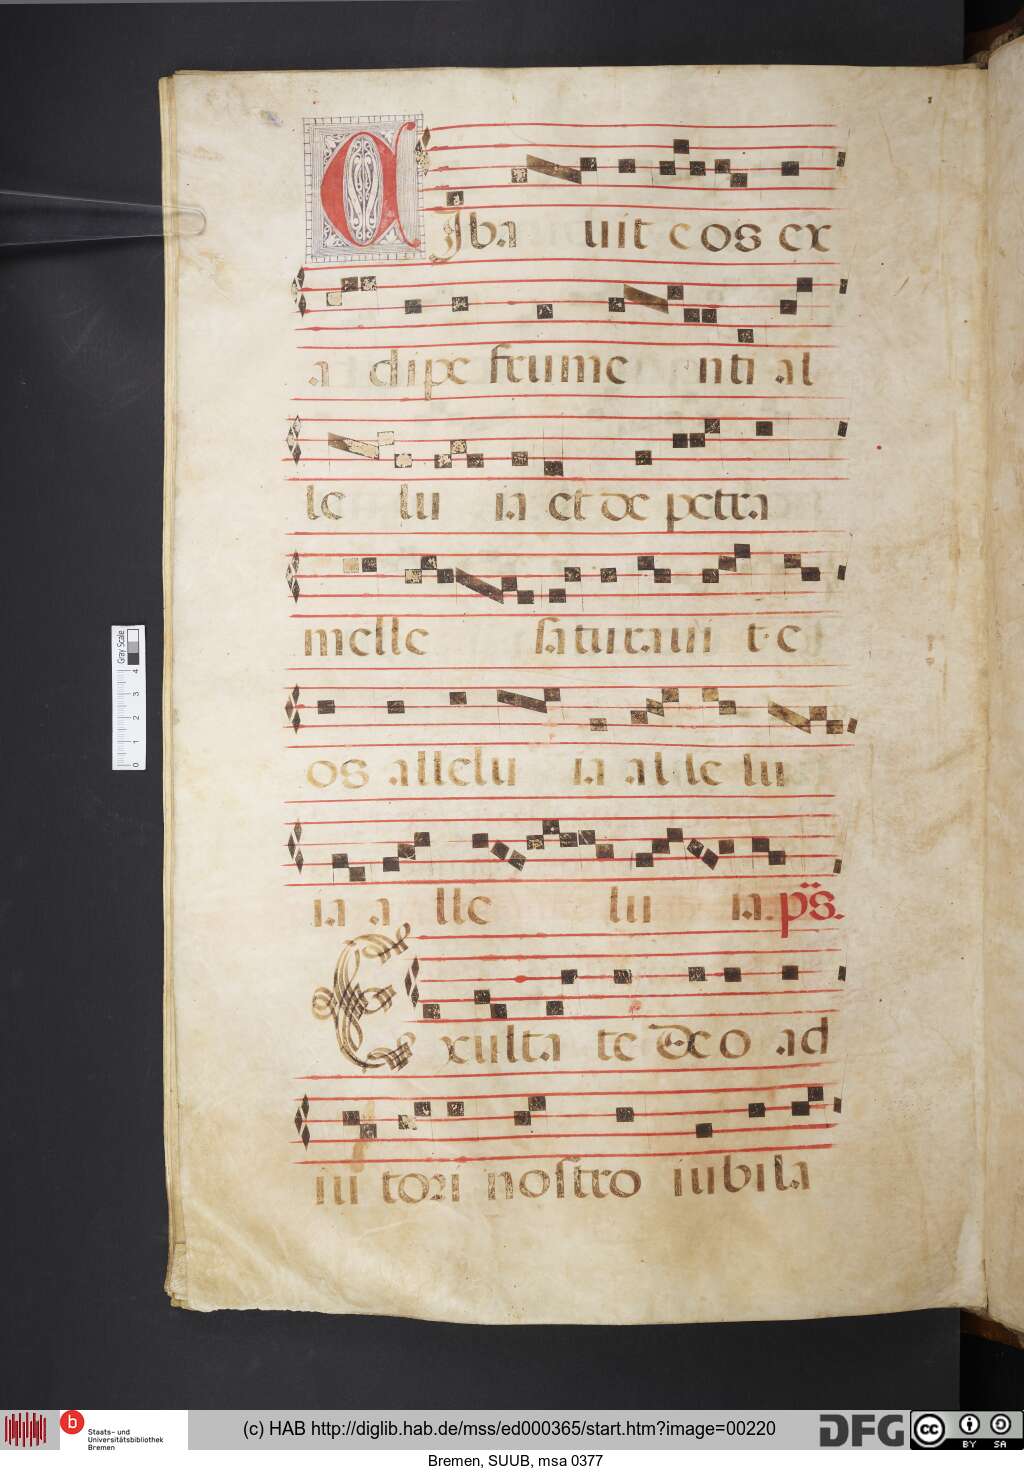 CIba uit eos ex
a dipe frume nti al
le lu ia et de petra
melle saturaui t e
os allelu ia al le lu
ia a lle lu ia. ps.
Ex xulta te deo ad
iu tori nostro iubila
Gray Scale
4
3
2
1
0
b
Staats- und
Universitätsbibliothek
Bremen
(c) HAB http://diglib.hab.de/mss/ed000365/start.htm?image=00220
DFG
cc
BY SA
Bremen, SUUB, msa 0377